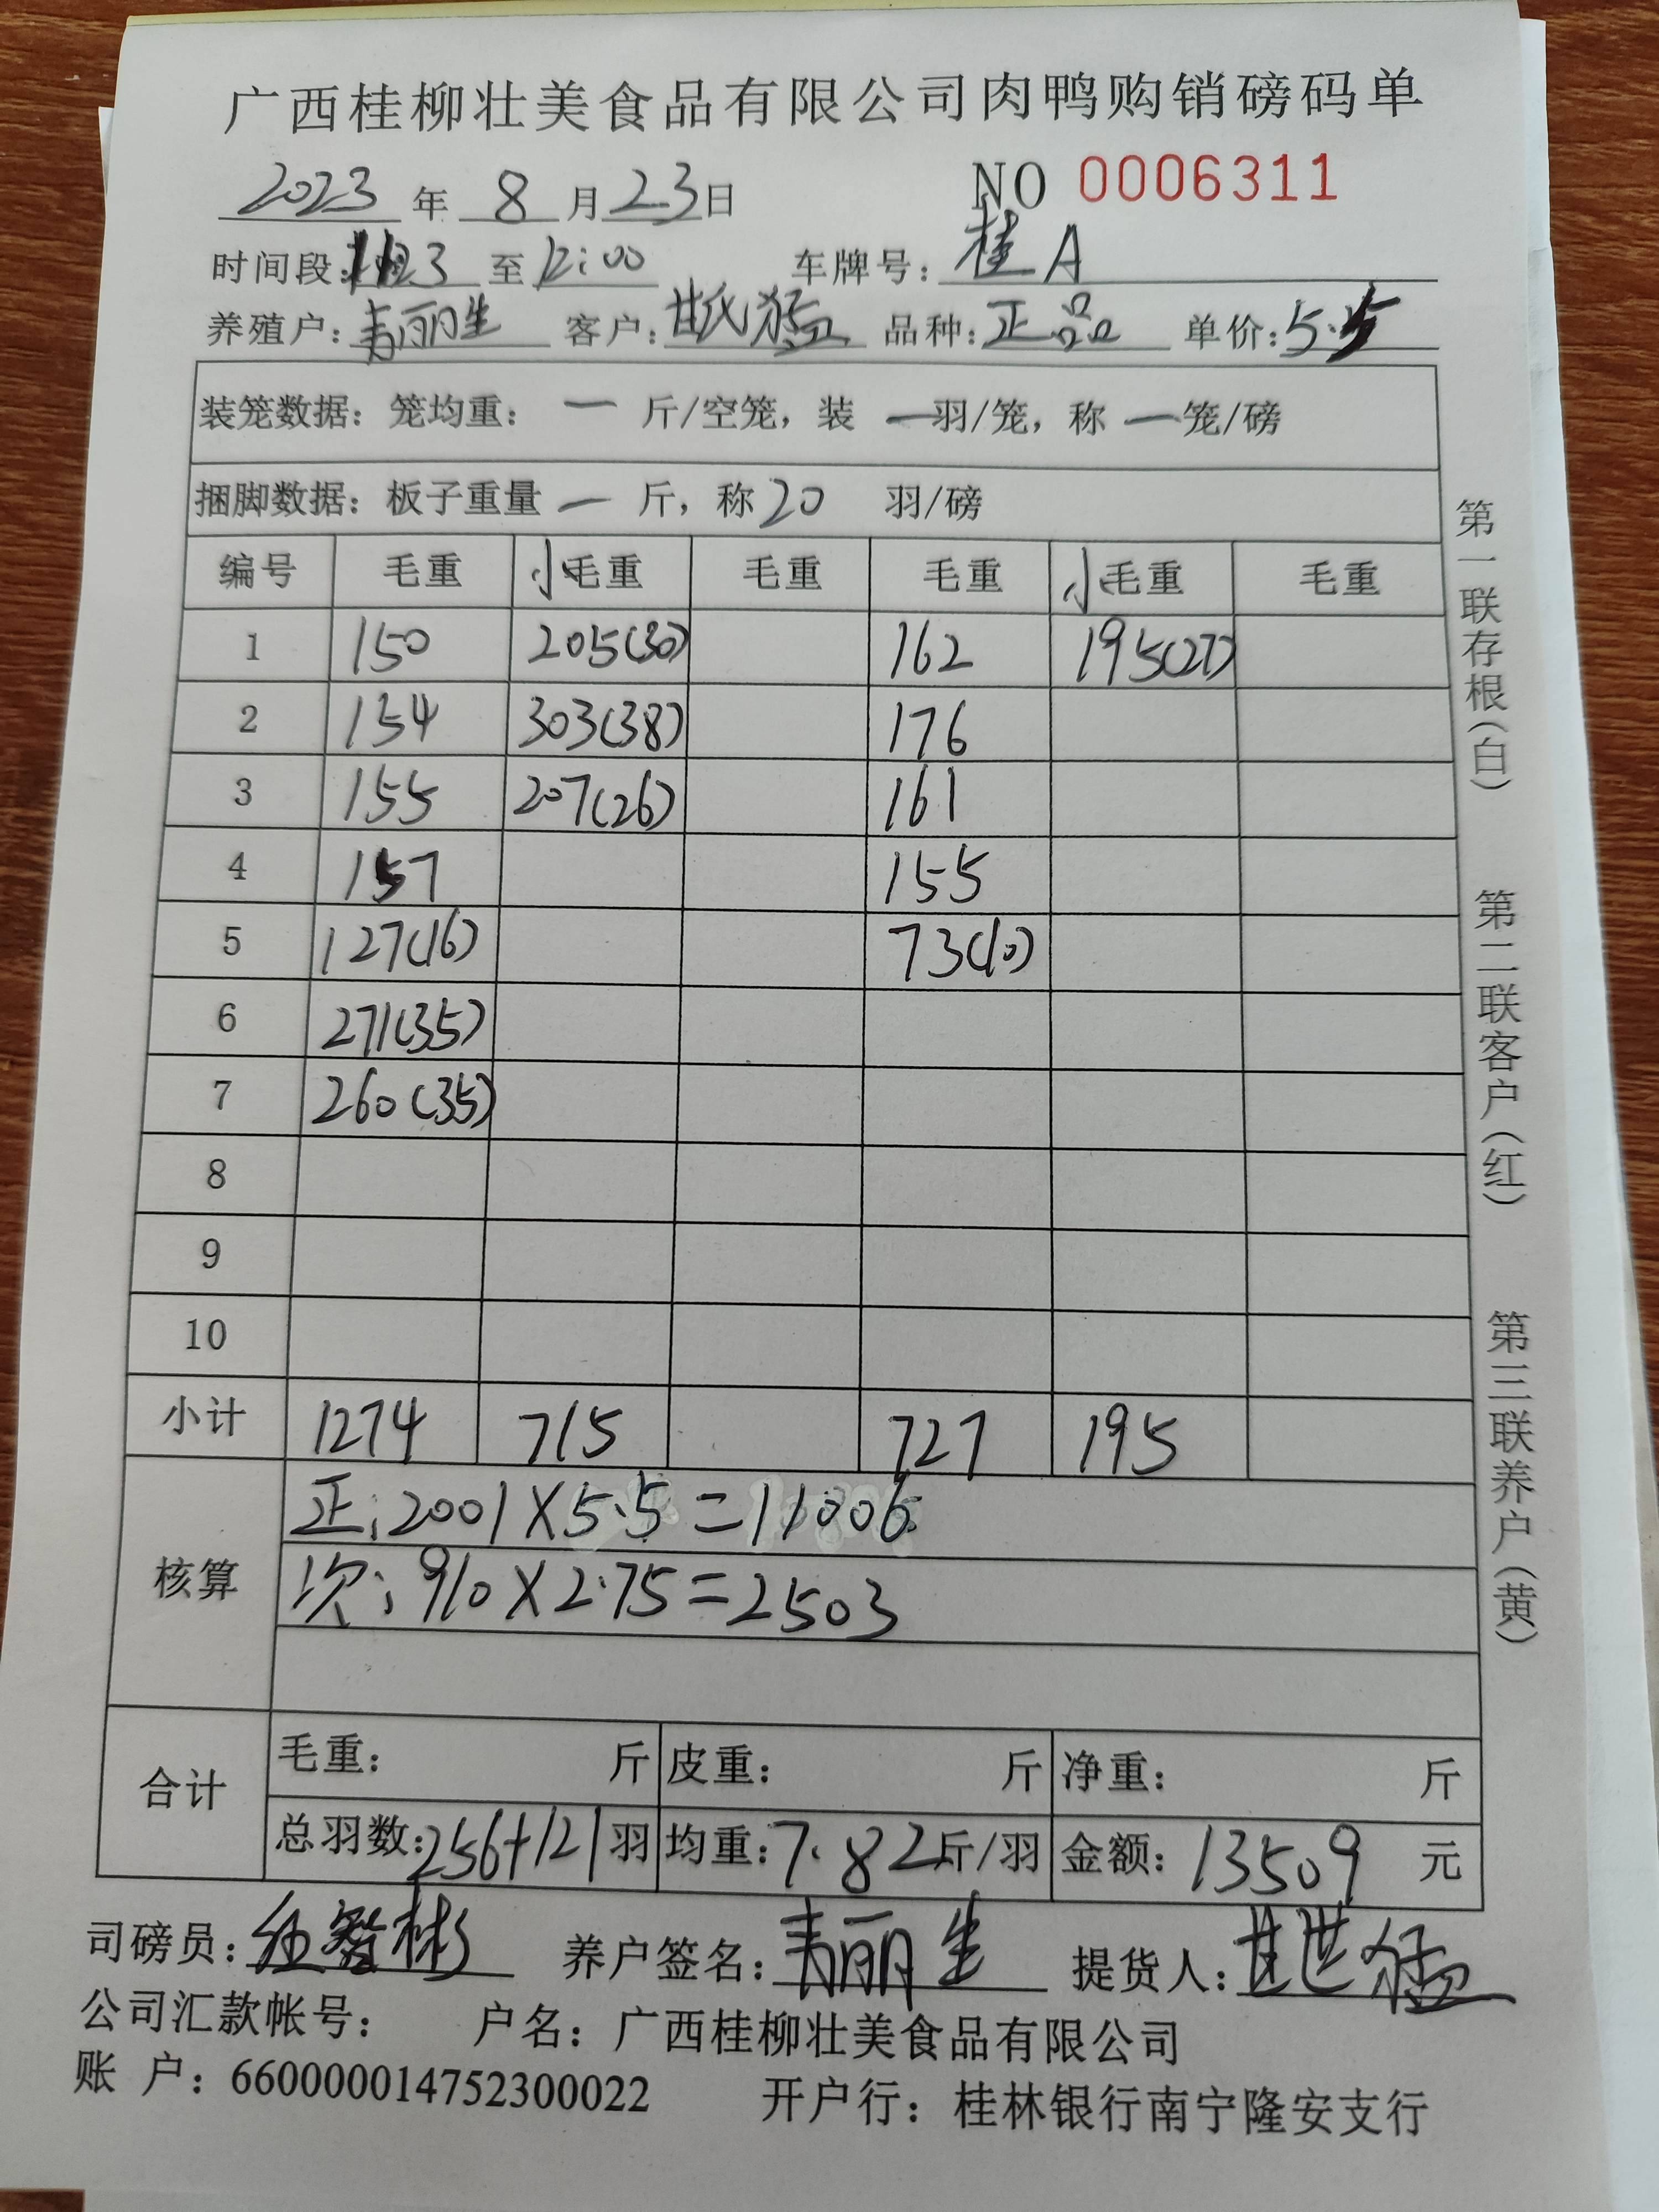 广西桂柳壮美食品有限公司肉鸭购销磅码单
2023年 8月23日 NO 0006311
时间段: 至12:00 车牌号:桂A
养殖户:韦丽生 客户:甘 猛 品种:正品 单价:5.5
装笼数据:笼均重: 一 斤/空笼,装 一羽/笼,称 一笼/磅
捆脚数据:板子重量 一 斤,称20 羽/磅
编号 毛重 小毛重 毛重 毛重 小毛重 毛重
1 150 205(30) 162 195(27)
2 154 303(38) 176
3 155 207(26) 161
4 157 155
5 127(16) 73(10)
6 271(35)
7 260(35)
8
9
10
小计 1274 715 727 195
核算 正:2001×5.5=11006
次:910×2.75=2503
合计 毛重: 斤 皮重: 斤 净重: 斤
总羽数:256+121羽 均重:7.82斤/羽 金额:13509 元
司磅员: 智彬 养户签名:韦丽生 提货人:甘世猛
公司汇款帐号: 户名:广西桂柳壮美食品有限公司
账 户:660000014752300022 开户行:桂林银行南宁隆安支行
第一联存根(白) 第二联客户(红) 第三联养户(黄)